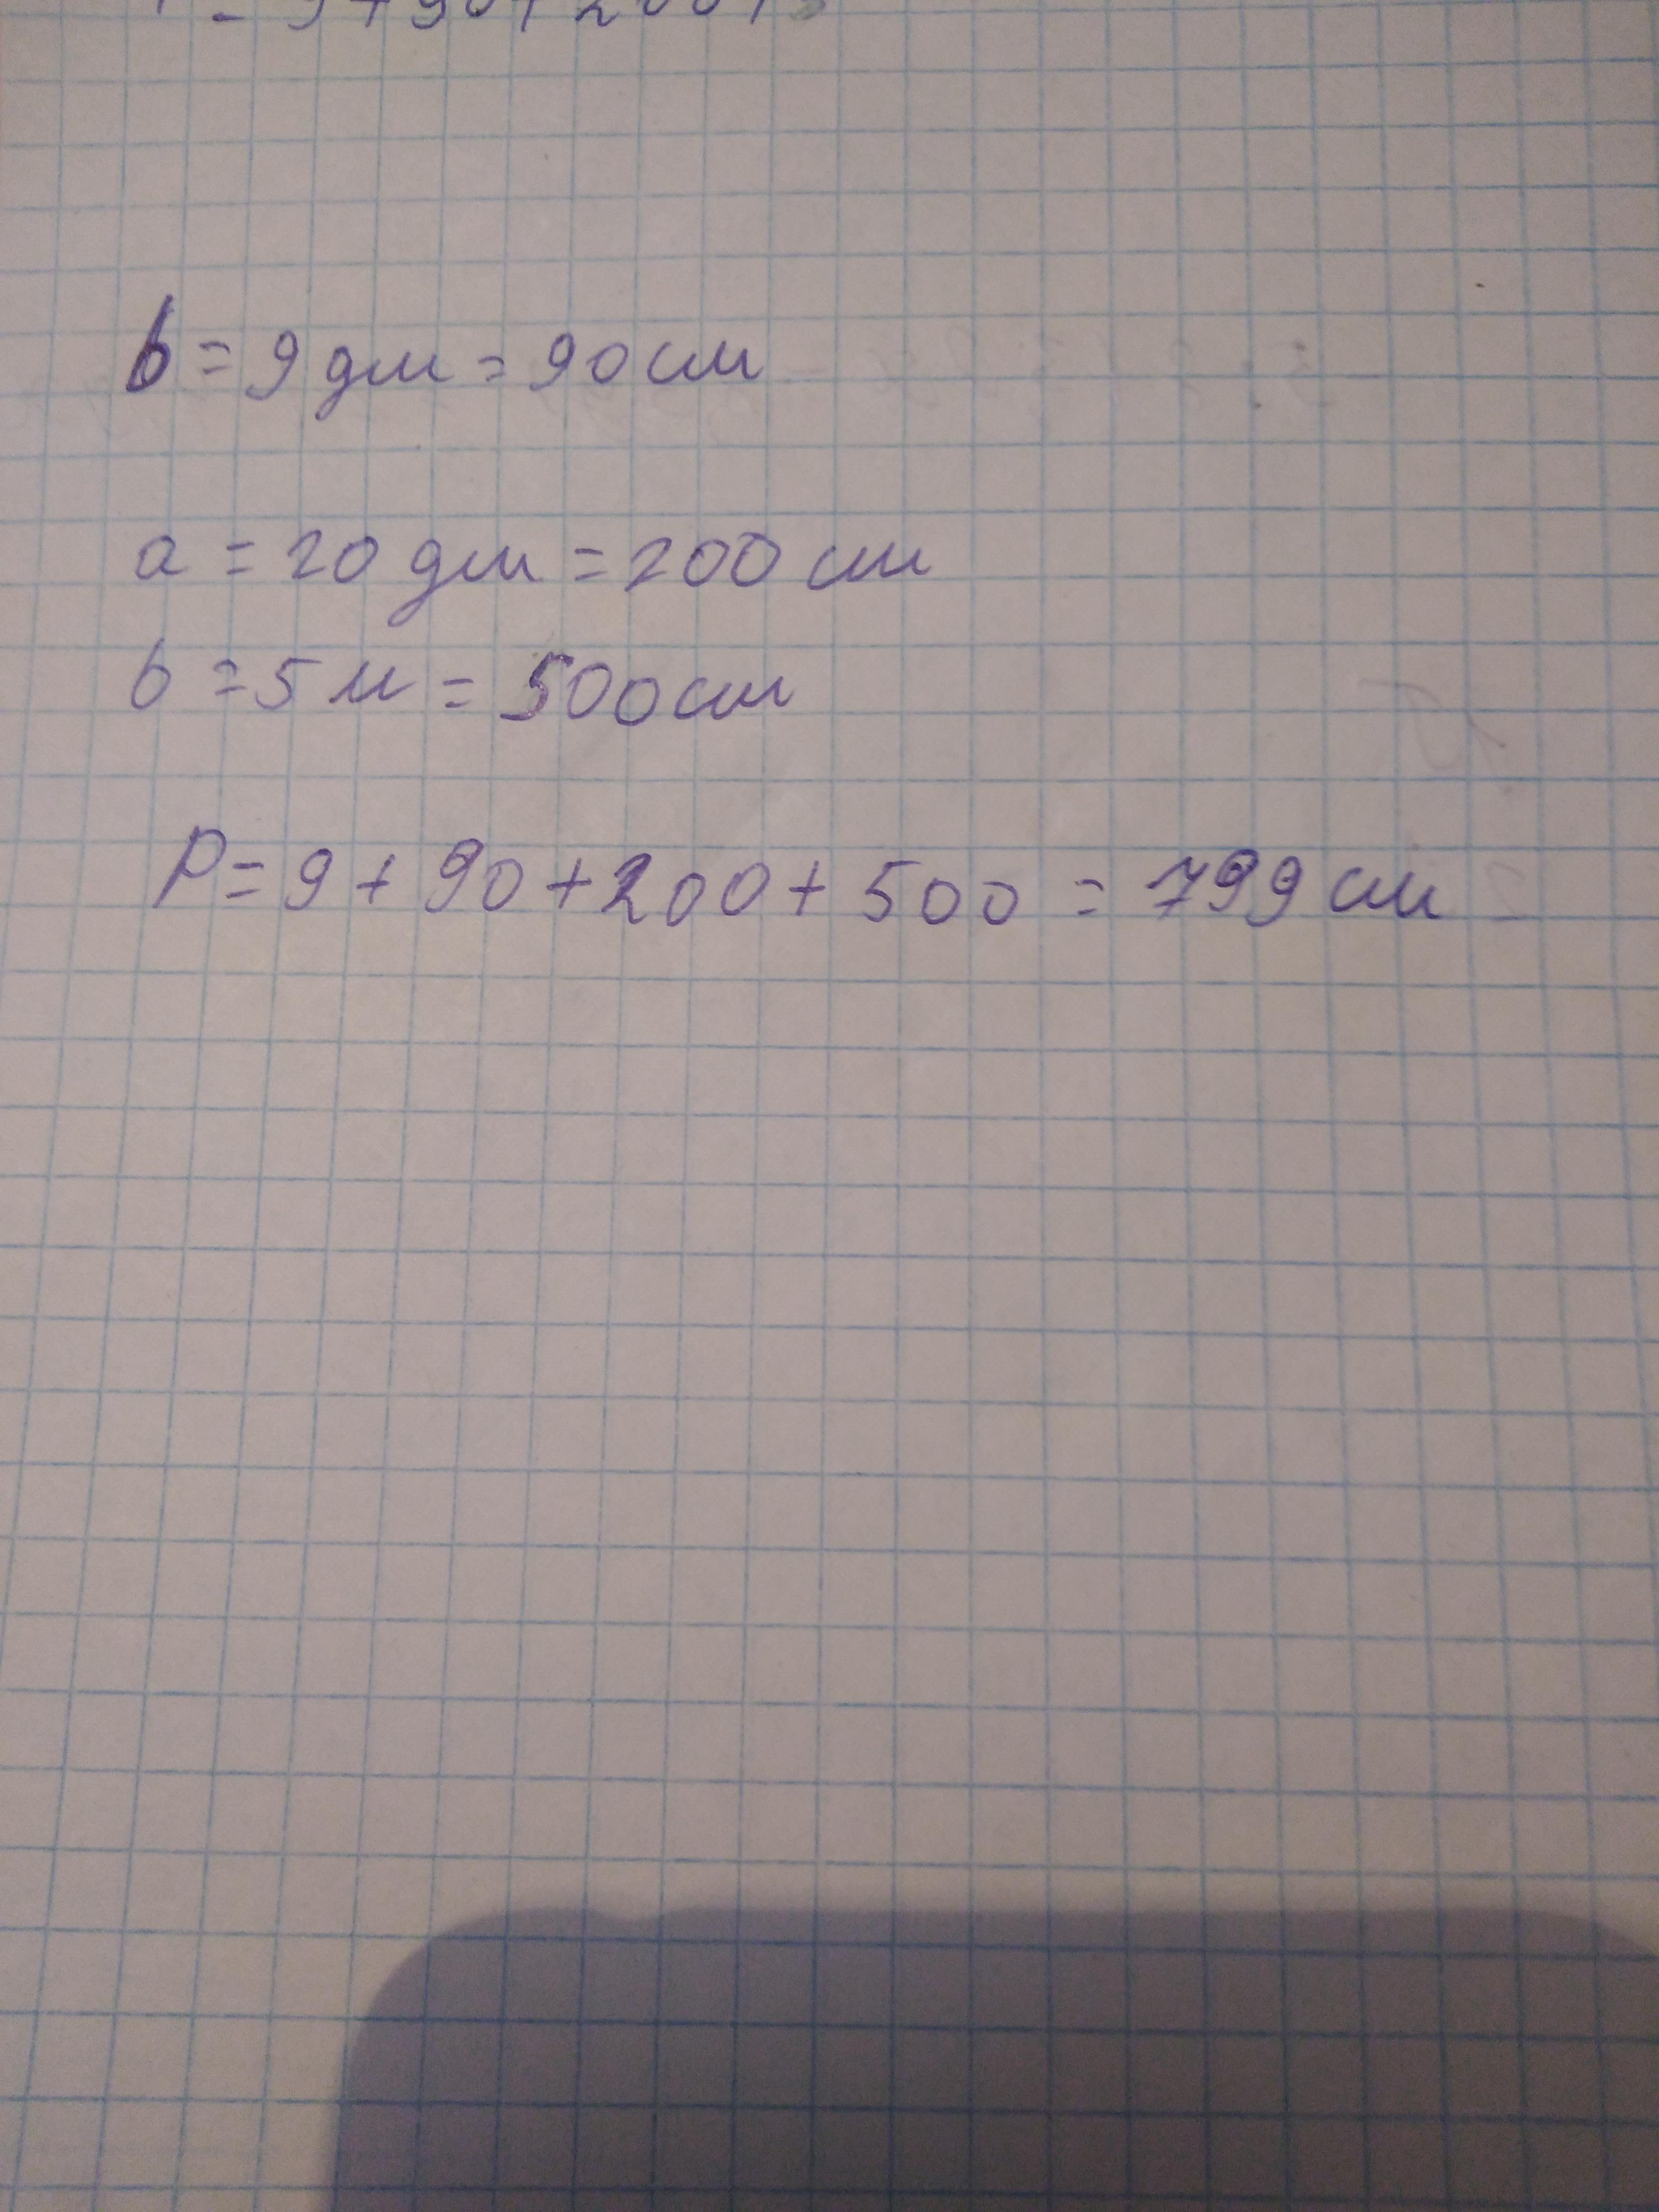 = 9 + 90 + 200 +
b = 9 дм = 90 см
a = 20 дм = 200 см
b = 5 м = 500 см
P = 9 + 90 + 200 + 500 = 799 см